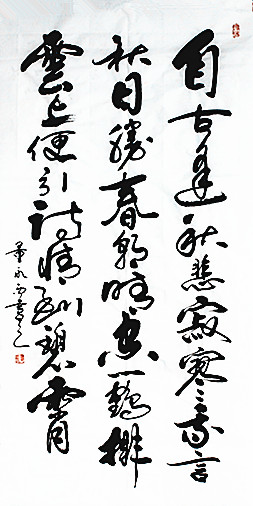 自古逢秋悲寂寥我言
秋日勝春朝晴空一鶴排
雲上便引詩情到碧霄